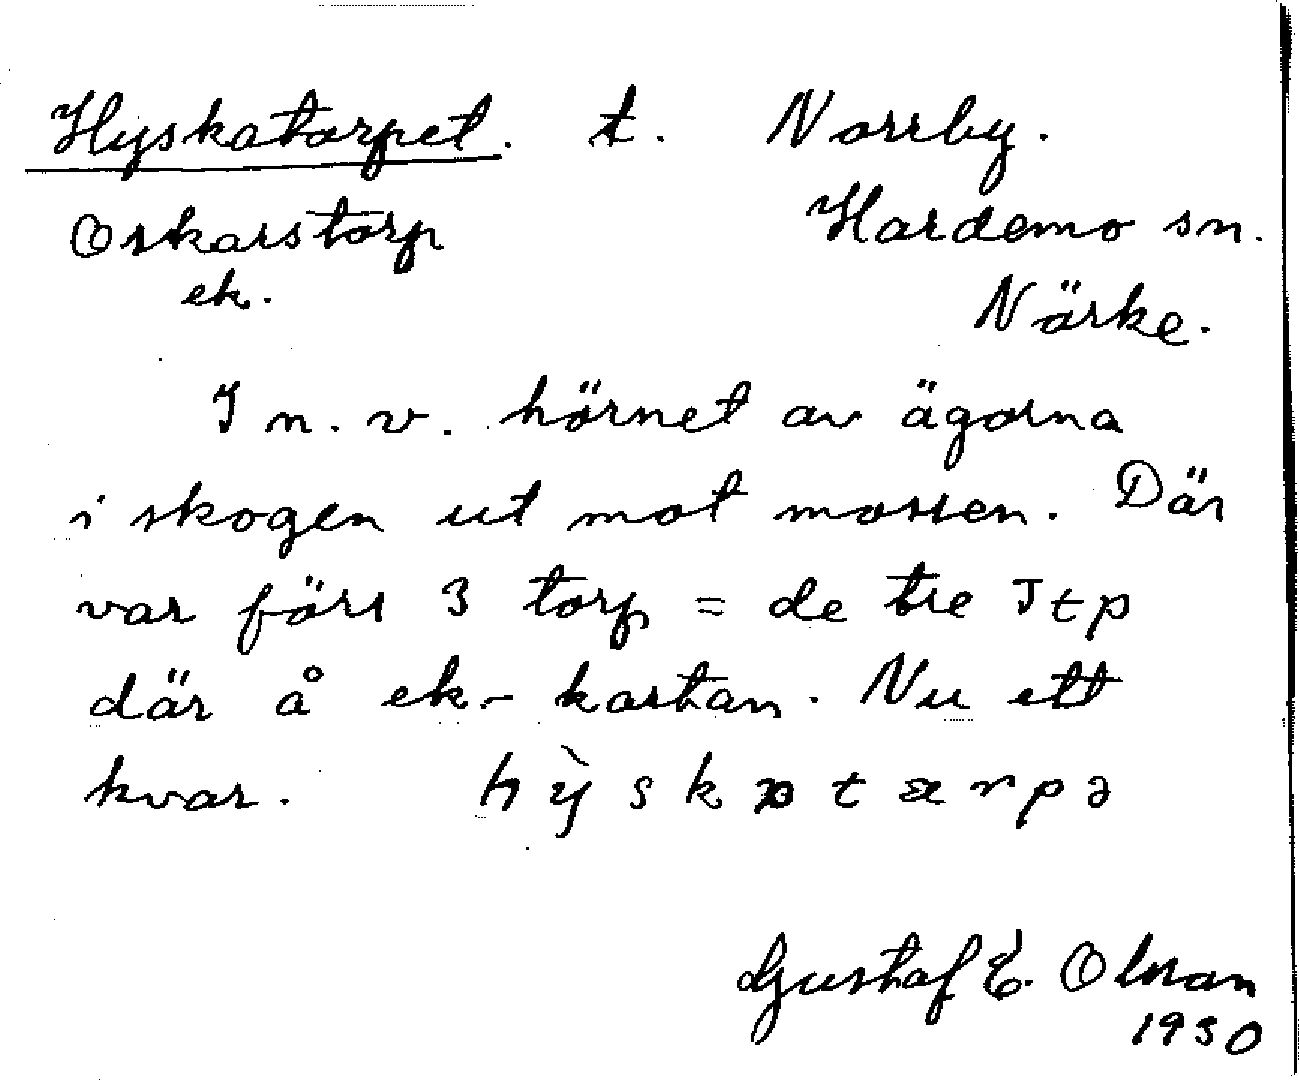 Hyskatorpet. t. Norrby.
Oskarstorp Hardemo sn.
ek. Närke.
I n. v. hörnet av ägorna
i skogen ut mot mossen. Där
var förs 3 torp = de tre Jtp
där å ek.- kartan. Nu ett
kvar. hỳskɒtɶrpə
Gustaf E. Olson
1930